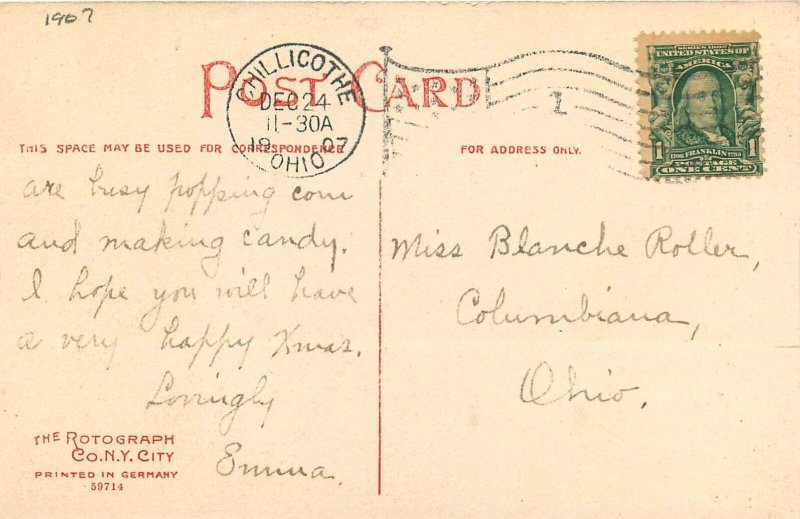 1907
POST CARD
CHILLICOTHE
DEC 24
11-30A
1907
OHIO
1
SERIES 1902
UNITED STATES OF
AMERICA
1706 FRANKLIN 1790
1 POSTAGE 1
ONE CENT
THIS SPACE MAY BE USED FOR CORRESPONDENCE
FOR ADDRESS ONLY.
are busy popping corn
and making candy.
I hope you will have
a very happy Xmas.
Lovingly
Emma.
Miss Blanche Roller,
Columbiana,
Ohio.
THE ROTOGRAPH
CO. N.Y. CITY
PRINTED IN GERMANY
59714